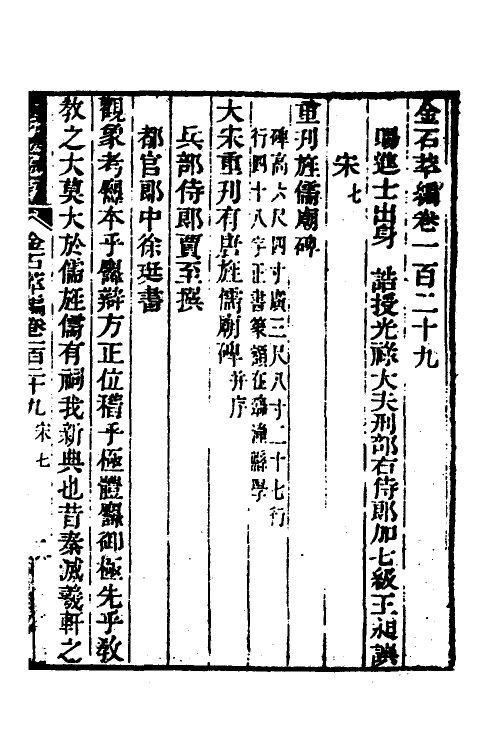 金石萃編卷一百二十九
賜進士出身　誥授光祿大夫刑部右侍郎加七級王昶譔
宋七
重刊旌儒廟碑
碑高六尺四寸廣三尺八寸二十七行
行四十八字正書篆額在臨潼縣學
大宋重刊有唐旌儒廟碑并序
兵部侍郎賈至撰
都官郎中徐珽書
觀象考曆本乎縣辯方正位稽乎極體縣御極先乎敎
敎之大莫大於儒旌儒有祠我新典也昔秦滅羲軒之
金石萃編卷一百二十九 宋七 一